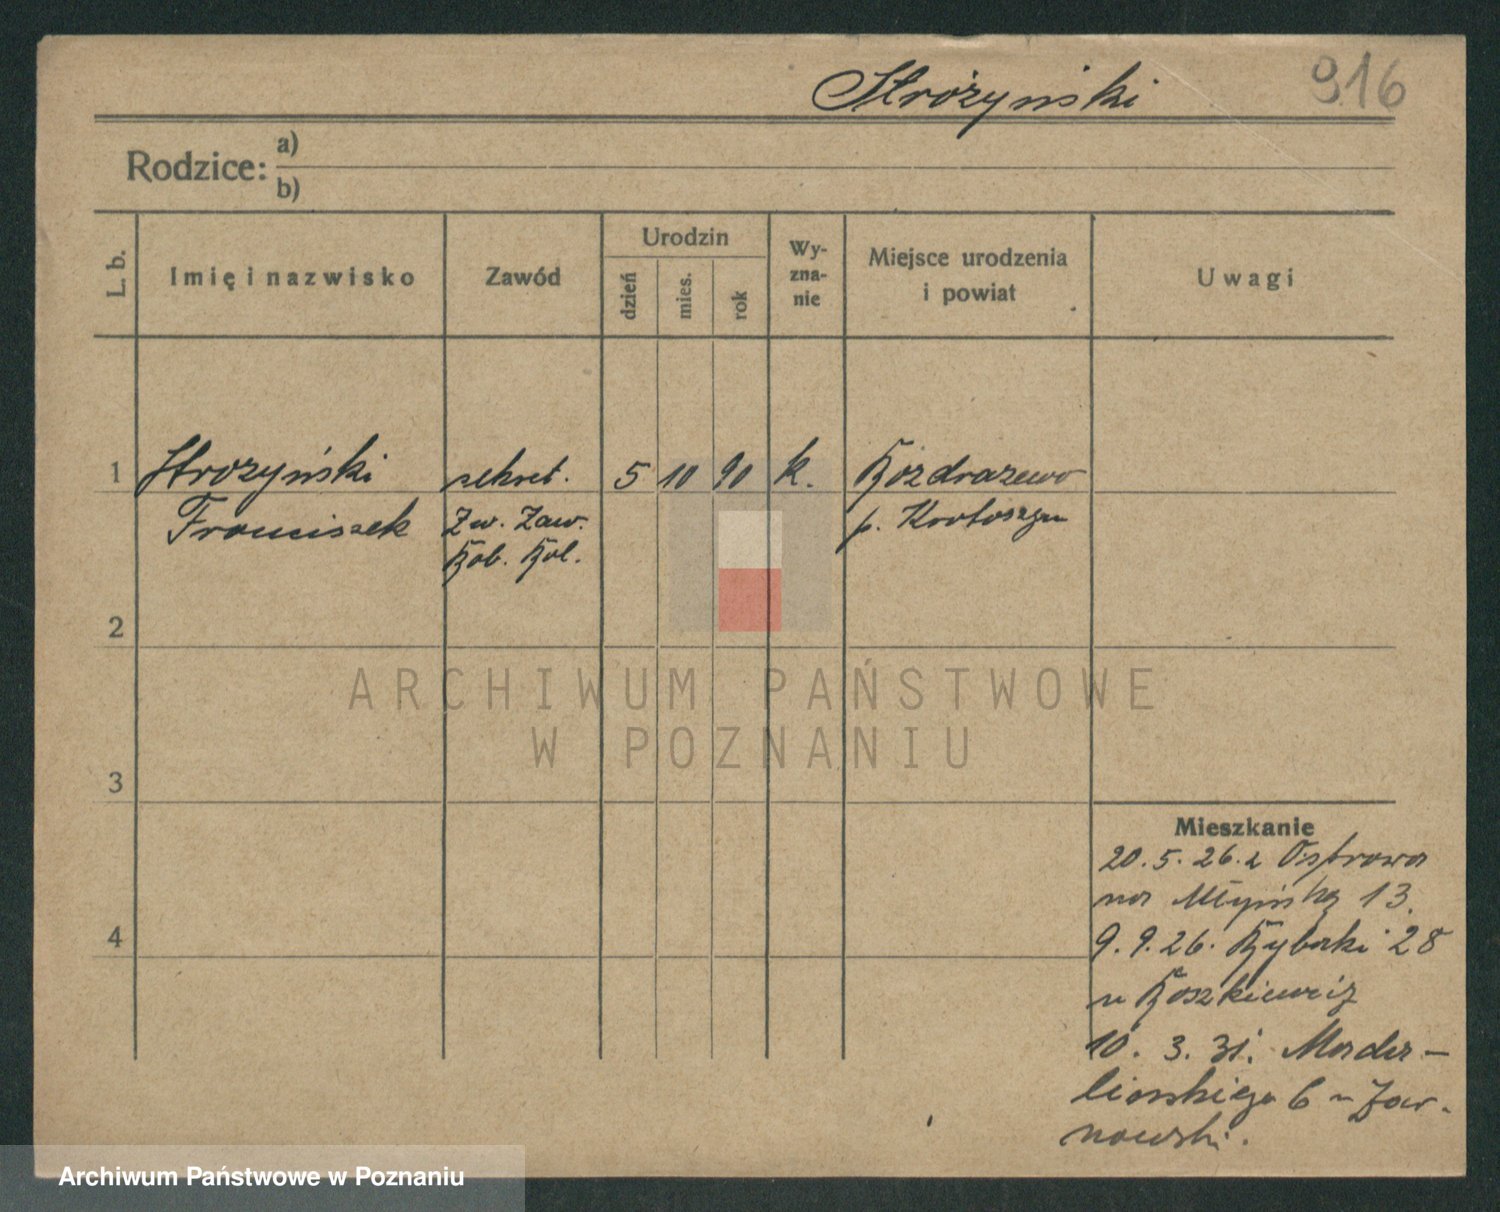 Stróżyński
916
Rodzice: a)
b)
L. b.
Imię i nazwisko
Zawód
Urodzin
dzień
mies.
rok
Wy-
zna-
nie
Miejsce urodzenia
i powiat
Uwagi
1 Stróżyński sekret. 5 10 90 k. Rozdrażewo
Franciszek Zw. Zaw. p. Krotoszyn
Rob. Rol.
2
3
4
Mieszkanie
20.5.26. z Ostrowa
na Młyńską 13.
9.9.26. Rybaki 28
u Roszkiewicz
10. 3. 31. Mada-
lińskiego 6
nowski.
ARCHIWUM PAŃSTWOWE
W POZNANIU
Archiwum Państwowe w Poznaniu